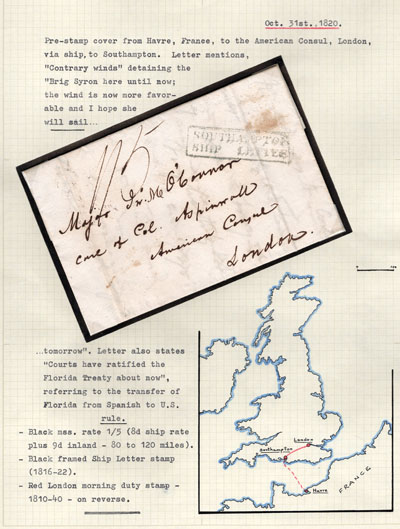 Oct. 31st. 1820.
Pre-stamp cover from Havre, France, to the American Consul, London,
via ship, to Southampton. Letter mentions,
"Contrary winds" detaining the
"Brig Syron here until now;
the wind is now more favor-
able and I hope she
will sail...
1/5
SOUTHAMPTON
SHIP LETTER
Major Jr. McO'Connor
care of Col. Aspinwall
American Consul
London.
...tomorrow". Letter also states
"Courts have ratified the
Florida Treaty about now",
referring to the transfer of
Florida from Spanish to U.S.
rule.
- Black mss. rate 1/5 (8d ship rate
plus 9d inland - 80 to 120 miles).
- Black framed Ship Letter stamp
(1816-22).
- Red London morning duty stamp -
1810-40 - on reverse.
London
Southampton
Havre
FRANCE